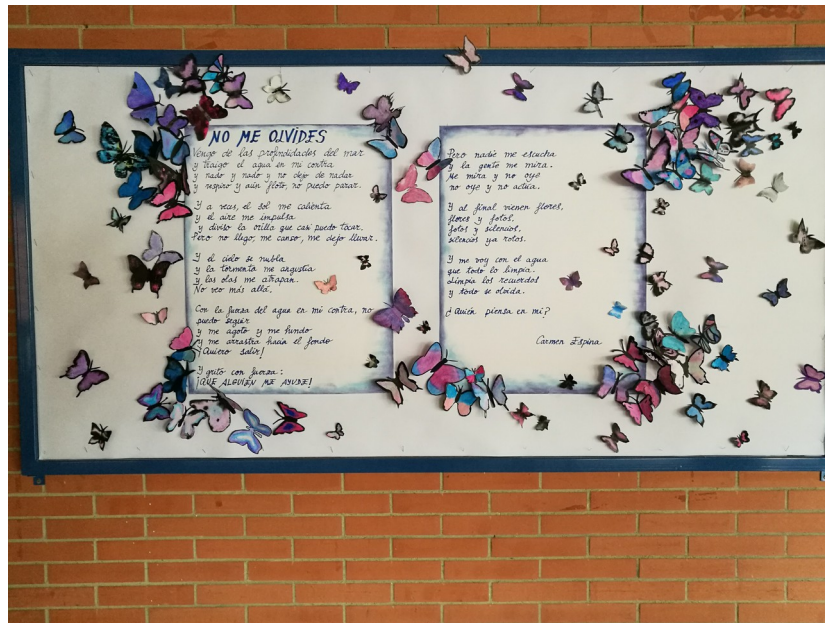 NO ME OLVIDES
Vengo de las profundidades del mar
y traigo el agua en mi contra
y nado y nado y no dejo de nadar
y respiro y aún floto, no puedo parar.
Y a veces, el sol me calienta
y el aire me impulsa
y diviso la orilla que casi puedo tocar.
Pero no llego, me canso, me dejo llevar.
Y el cielo se nubla
y la tormenta me angustia
y las olas me atrapan.
No veo más allá.
Con la fuerza del agua en mi contra, no
puedo seguir
y me agoto y me hundo
y me arrastra hacia el fondo
¡Quiero salir!
Y grito con fuerza:
¡QUE ALGUIEN ME AYUDE!
Pero nadie me escucha
y la gente me mira.
Me mira y no oye
no oye y no actúa.
Y al final vienen flores,
flores y fotos,
fotos y silencios,
silencios ya rotos.
Y me voy con el agua
que todo lo limpia.
Limpia los recuerdos
y todo se olvida.
¿Quién piensa en mí?
Carmen Espina